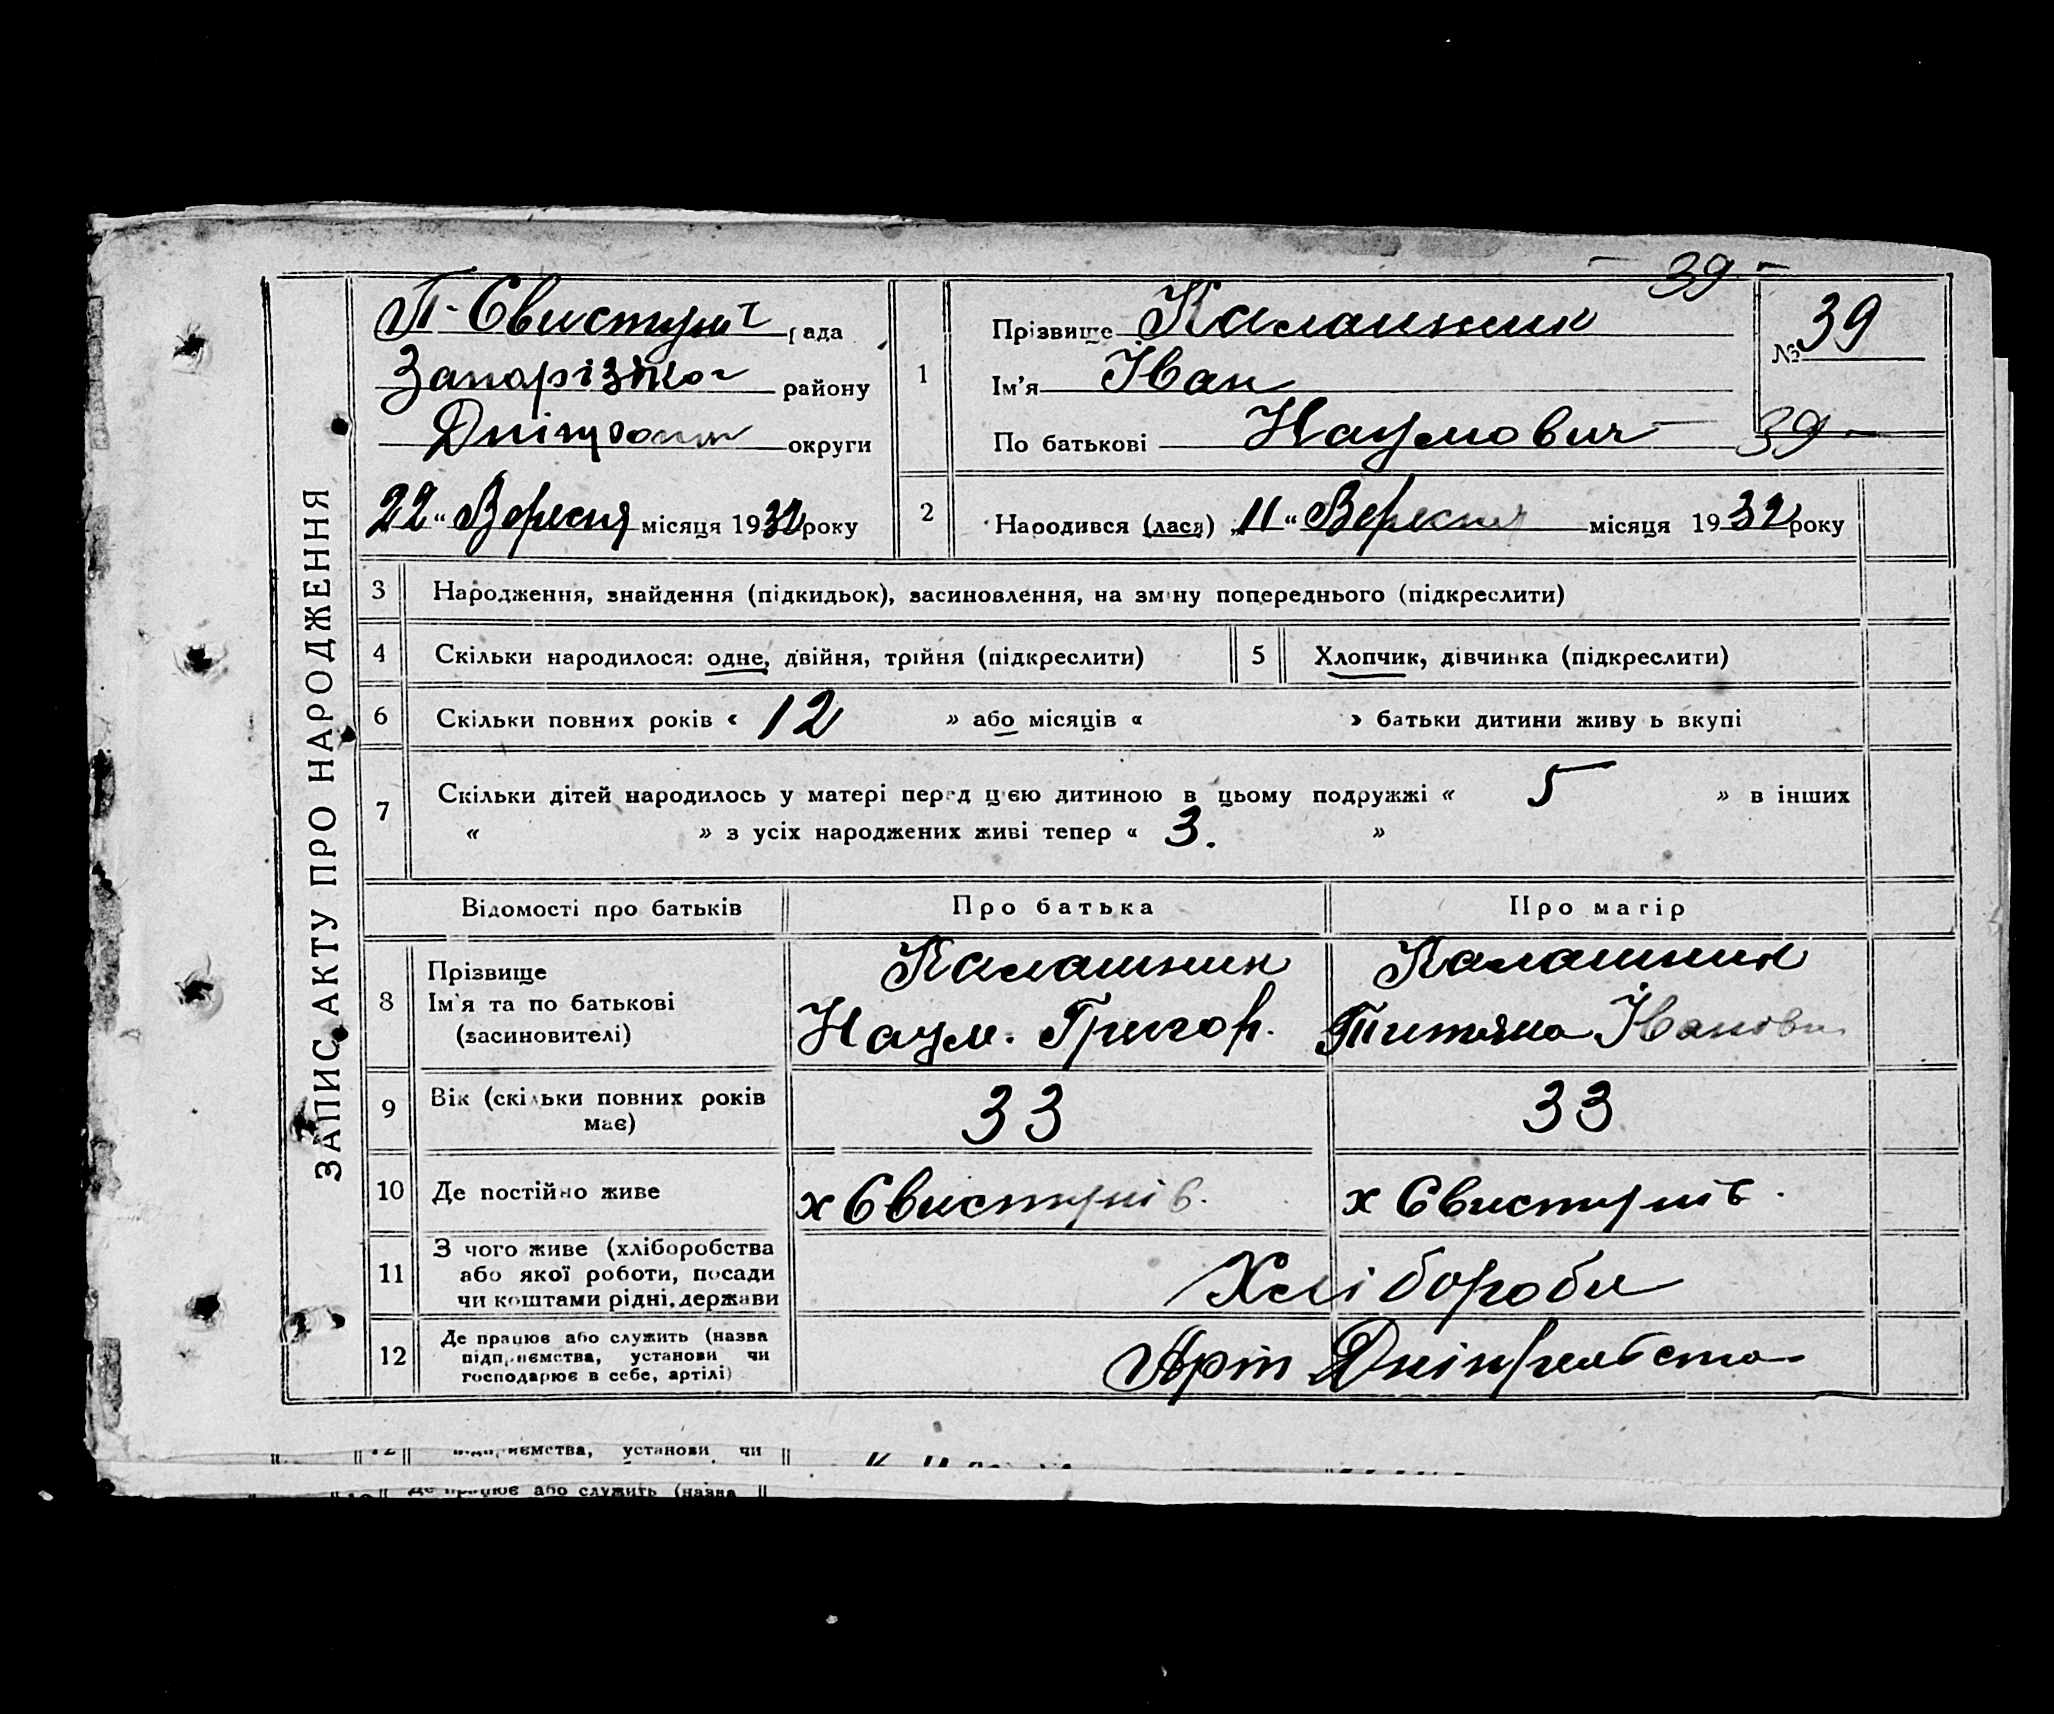 ЗАПИС АКТУ ПРО НАРОДЖЕННЯ
П-Свистун рада
Запорізьког району
округи
22 " Вересня місяця 1932 року
- 39 -
1 Прізвище Калашник
№ 39
Ім'я Іван
По батькові Наумович 39 -
2 Народився (лася) „11 “ Вересня місяця 1932 року
3 Народження, знайдення (підкидьок), засиновлення, на зміну попереднього (підкреслити)
4 Скільки народилося: одне, двійня, трійня (підкреслити) 5 Хлопчик, дівчинка (підкреслити)
6 Скільки повних років « 12 » або місяців « » батьки дитини живу ь вкупі
7 Скільки дітей народилось у матері перед цією дитиною в цьому подружжі « 5 » в інших
« » з усіх народжених живі тепер « 3. »
Відомості про батьків Про батька Про матір
8 Прізвище Калашник Калашник
Ім'я та по батькові Наум. Григор. Титяна Іванови
(засиновителі)
9 Вік (скільки повних років має) 33 33
10 Де постійно живе х Свистунів. х Свистунів.
11 З чого живе (хліборобства
або якої роботи, посади
чи коштами рідні, держави Хлібороби
12 Де працює або служить (назва
підприємства, установи чи
господарює в себе, артілі) Арт
підприємства, установи чи
Де працює або служить (назва